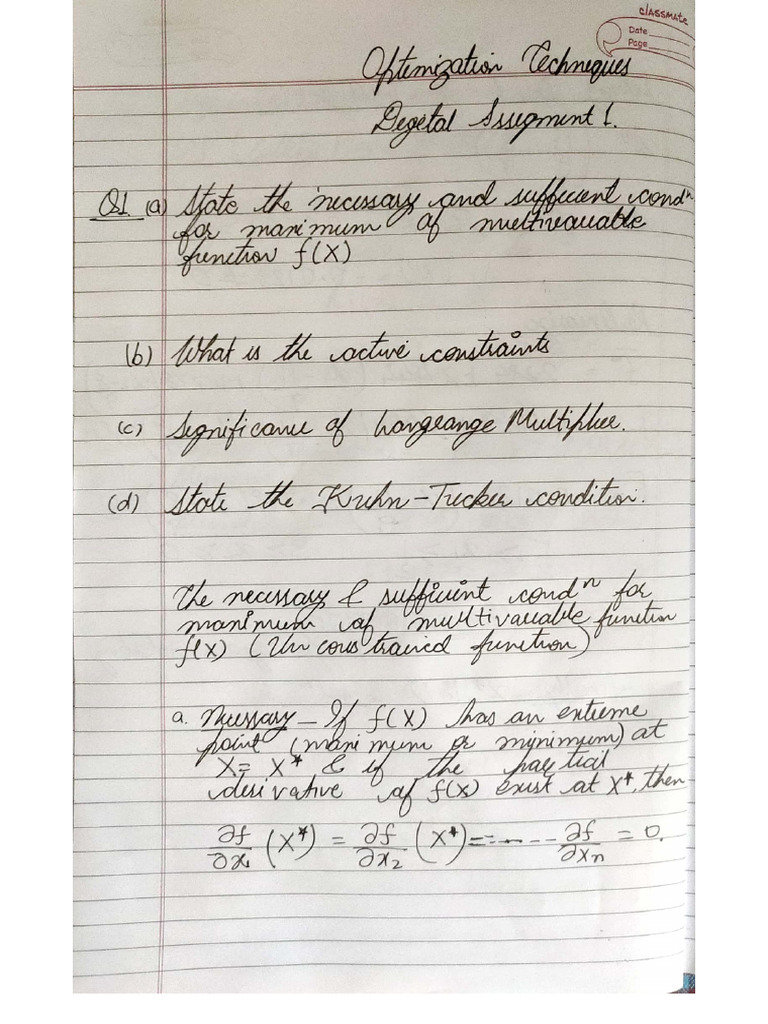 classmate
Date
Page
Optimization Techniques
Degetal Assigment 1.
Q1. (a) State the necessary and sufficient condⁿ
for maximum of multivariable
function f(X)
(b) What is the active constraints
(c) Significance of Langrange Multiplier.
(d) State the Kuhn-Tucker condition.
The necessary & sufficient condⁿ for
maximum of multivariable function
f(x) (Un constrained function)
a. Necessary - If f(X) has an extreme
point (maximum or minimum) at
X = X* & if the partial
derivative of f(x) exist at X*, then
∂f/∂x₁ (X*) = ∂f/∂x₂ (X*) = ----- ∂f/∂xₙ = 0.